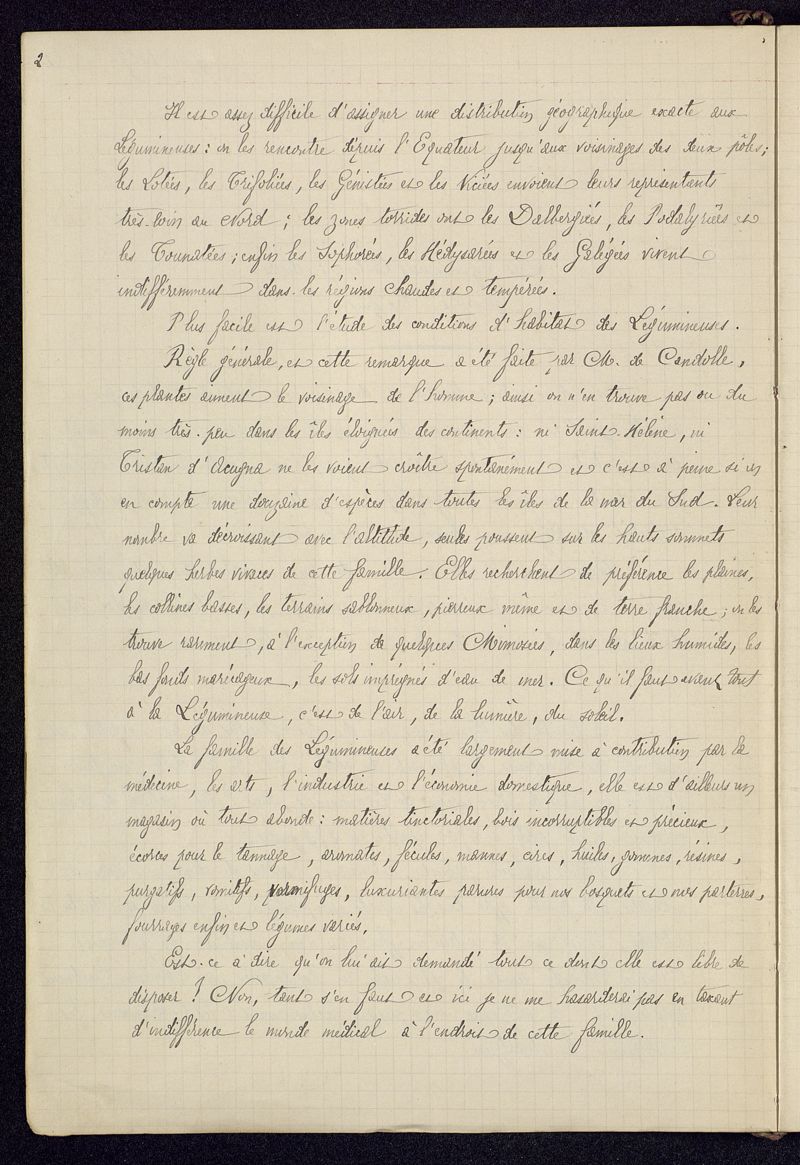 2
Il est assez difficile d'assigner une distribution géographique exacte aux
Légumineuses : on les rencontre depuis l'Equateur jusqu'aux voisinages des deux pôles ;
les Lotées, les Trifoliées, les Génistées et les Viciées envoient leurs représentants
très-loin au Nord ; les zones torrides ont les Dalbergiées, les Podalyriées et
les Tounatées ; enfin les Sophorées, les Hédysarées et les Galégées vivent
indifféremment dans les régions chaudes et tempérées.
Plus facile est l'étude des conditions d'habitat des Légumineuses.
Règle générale, et cette remarque a été faite par M. de Candolle,
ces plantes aiment le voisinage de l'homme ; ainsi on n'en trouve pas ou du
moins très-peu dans les îles éloignées des continents : ni Saint-Hélène, ni
Tristan d'Acugna ne les voient croître spontanément et c'est à peine si on
en compte une douzaine d'espèces dans toutes les îles de la mer du Sud. Leur
nombre va décroissant avec l'altitude, seules poussent sur les hauts sommets
quelques herbes vivaces de cette famille. Elles recherchent de préférence les plaines,
les collines basses, les terrains sablonneux, pierreux même et de terre franche ; on les
trouve rarement, à l'exception de quelques Mimosées, dans les lieux humides, les
bas fonds marécageux, les sols imprégnés d'eau de mer. Ce qu'il faut avant tout
à la Légumineuse, c'est de l'air, de la lumière, du soleil.
La famille des Légumineuses a été largement mise à contribution par la
médecine, les arts, l'industrie et l'économie domestique, elle est d'ailleurs un
magasin où tout abonde : matières tinctoriales, bois incorruptibles et précieux,
écorces pour le tannage, aromates, fécules, mannes, cires, huiles, gommes, résines,
purgatifs, vomitifs, vermifuges, luxuriantes parures pour nos bosquets et nos parterres,
fourrages enfin et légumes variés.
Est-ce à dire qu'on lui ait demandé tout ce dont elle est libre de
disposer ? Non, tant s'en faut et ici je ne me hasarderai pas en taxant
d'indifférence le monde médical à l'endroit de cette famille.